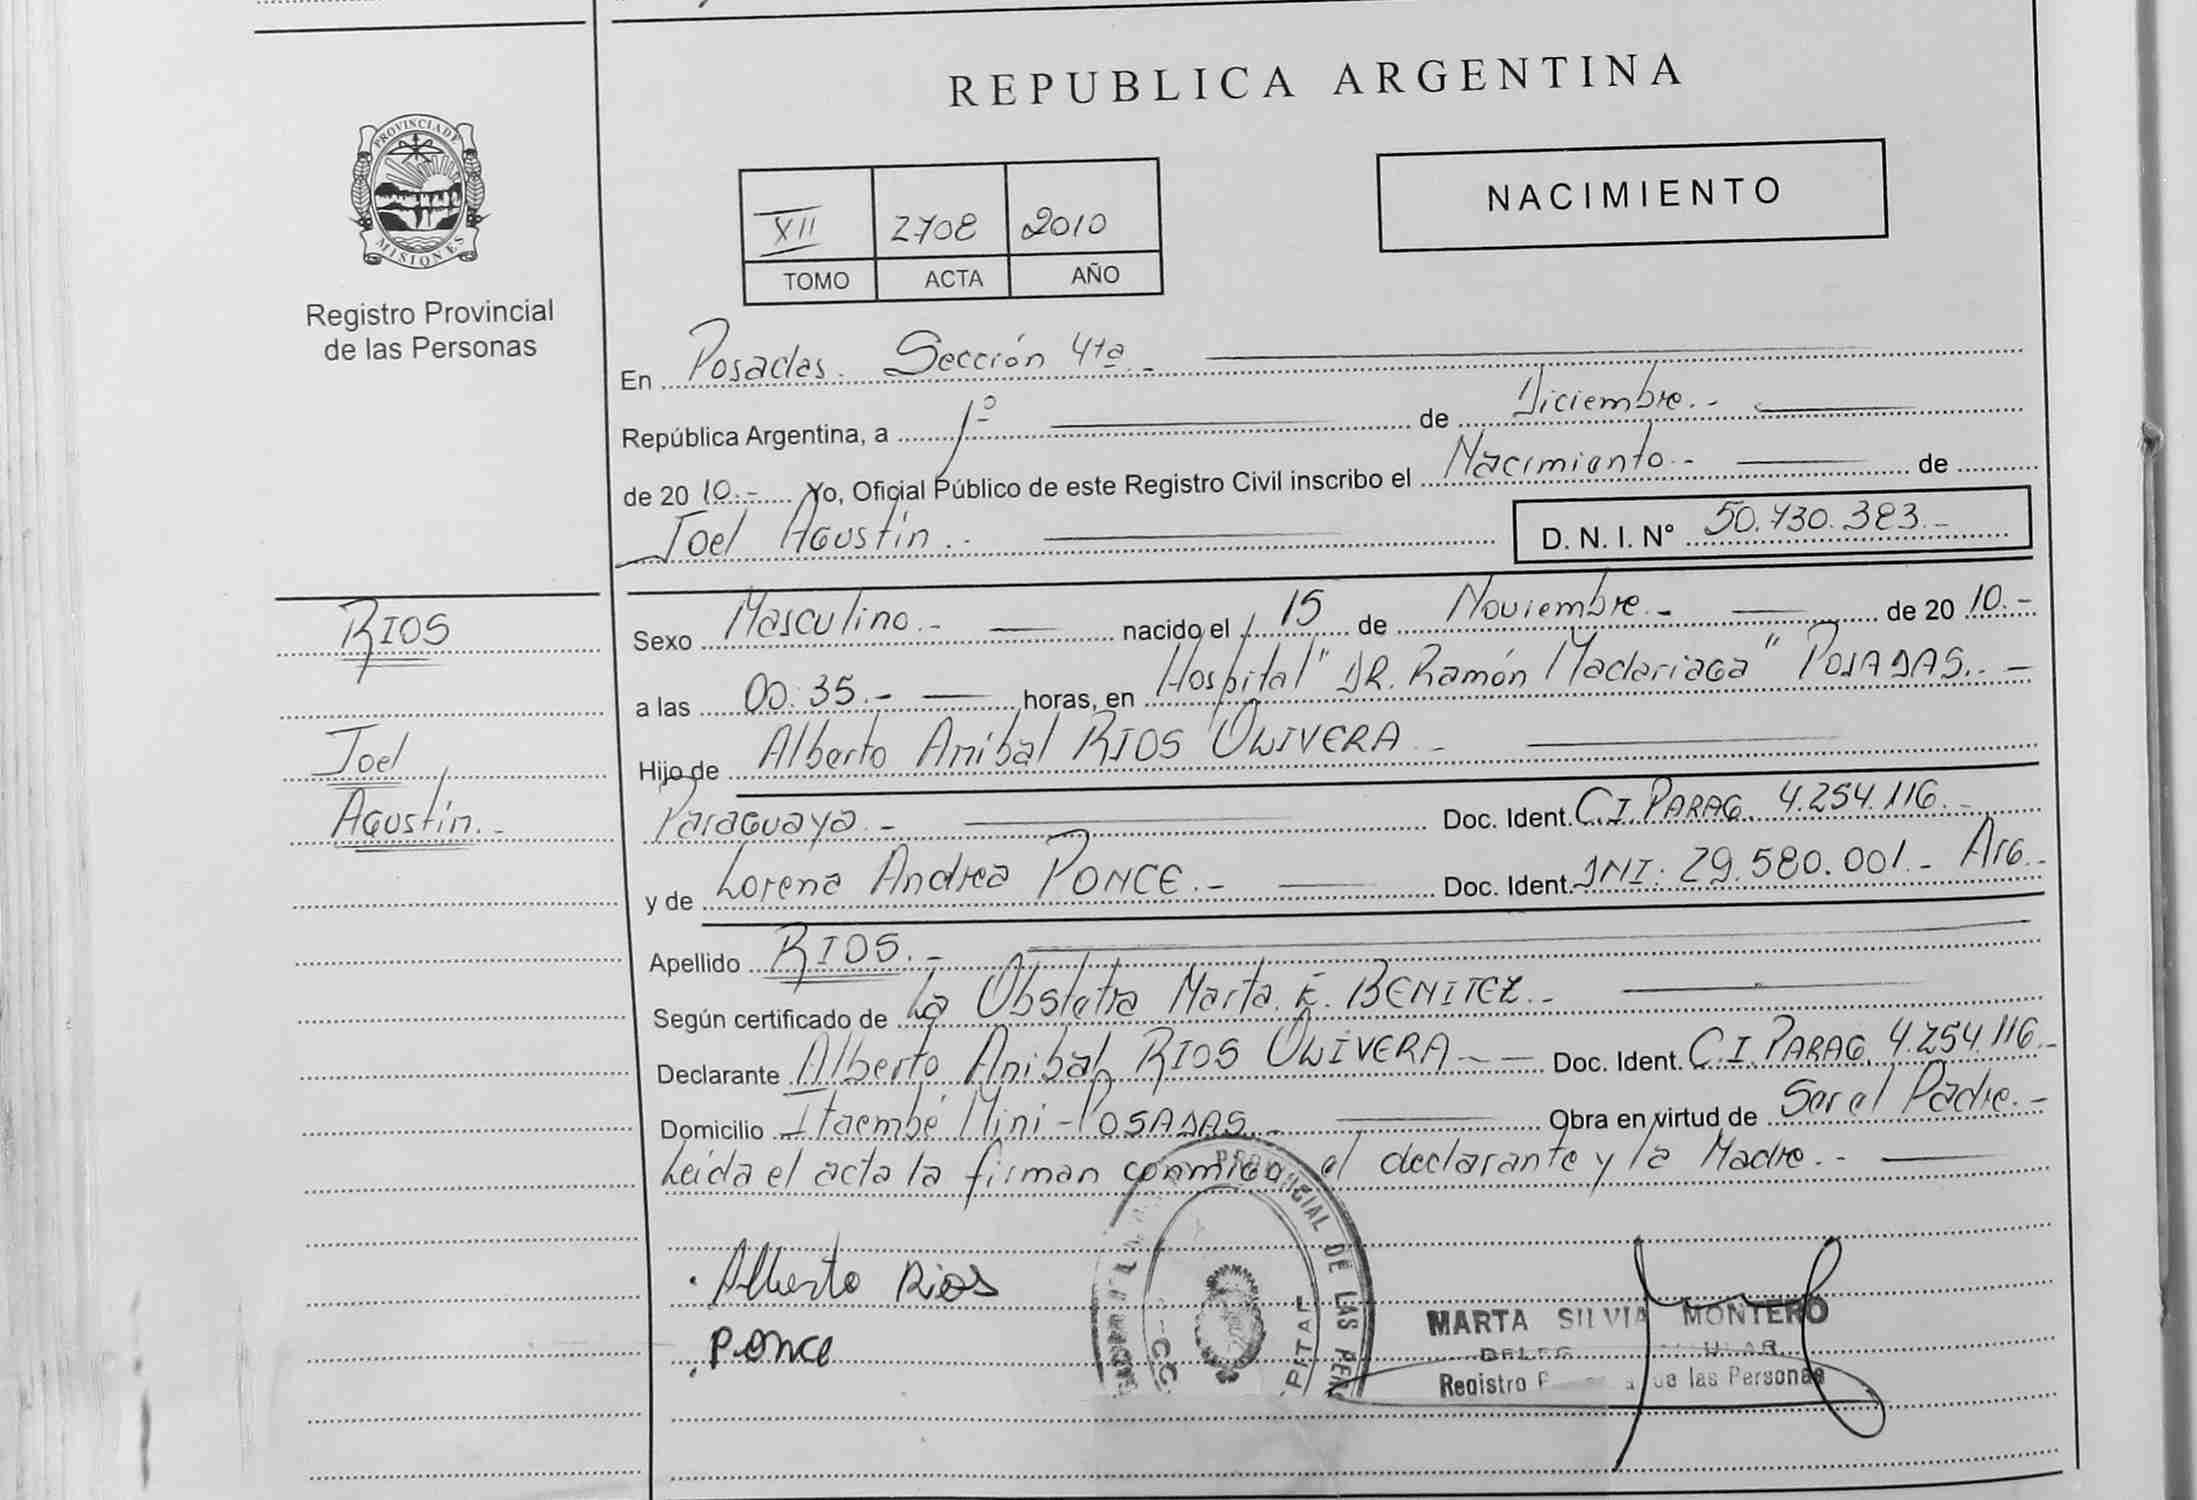 REPUBLICA ARGENTINA
PROVINCIA DE
MISIONES
Registro Provincial
de las Personas
NACIMIENTO
XII 2708 2010
TOMO ACTA AÑO
En Posadas. Sección 4ta.-
República Argentina, a 1º de Diciembre.-
de 20 10.- Yo, Oficial Público de este Registro Civil inscribo el Nacimiento.- de
Joel Agustín.- D. N. I. Nº 50.730.383.-
RIOS
Joel
Agustín.-
Sexo Masculino.- nacido el 15 de Noviembre.- de 20 10.-
a las 00:35.- horas, en Hospital "DR. Ramón Madariaga" POSADAS.-
Hijo de Alberto Anibal RIOS OLIVERA.-
Paraguaya.- Doc. Ident. C.I. PARAG. 4.254.116.-
y de Lorena Andrea PONCE.- Doc. Ident. DNI: 29.580.001.- Arg.-
Apellido RIOS.-
Según certificado de La Obstetra Marta E. BENITEZ.-
Declarante Alberto Anibal RIOS OLIVERA.- Doc. Ident. C.I. PARAG. 4.254.116.-
Domicilio Itaembé Mini - POSADAS.- Obra en virtud de Ser el Padre.-
Leída el acta la firman conmigo el declarante y la Madre.-
Alberto Rios
Ponce
PROVINCIAL DE LAS
MARTA SILVIA MONTERO
Registro de las Personas